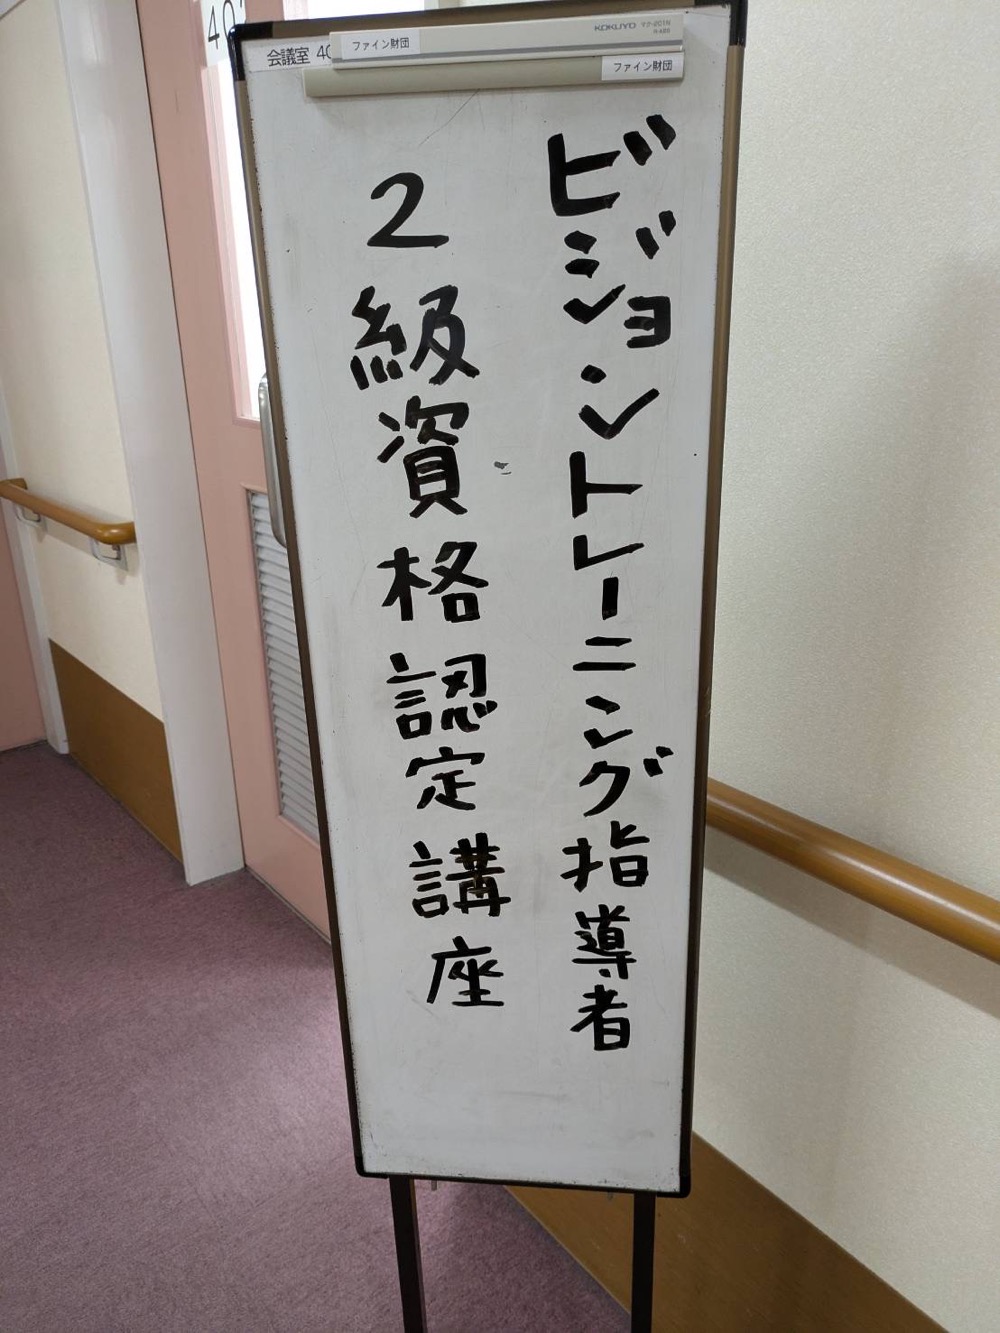 会議室 40
ファイン財団
KOKUYO
ファイン財団
ビジョントレーニング指導者
2級資格認定講座